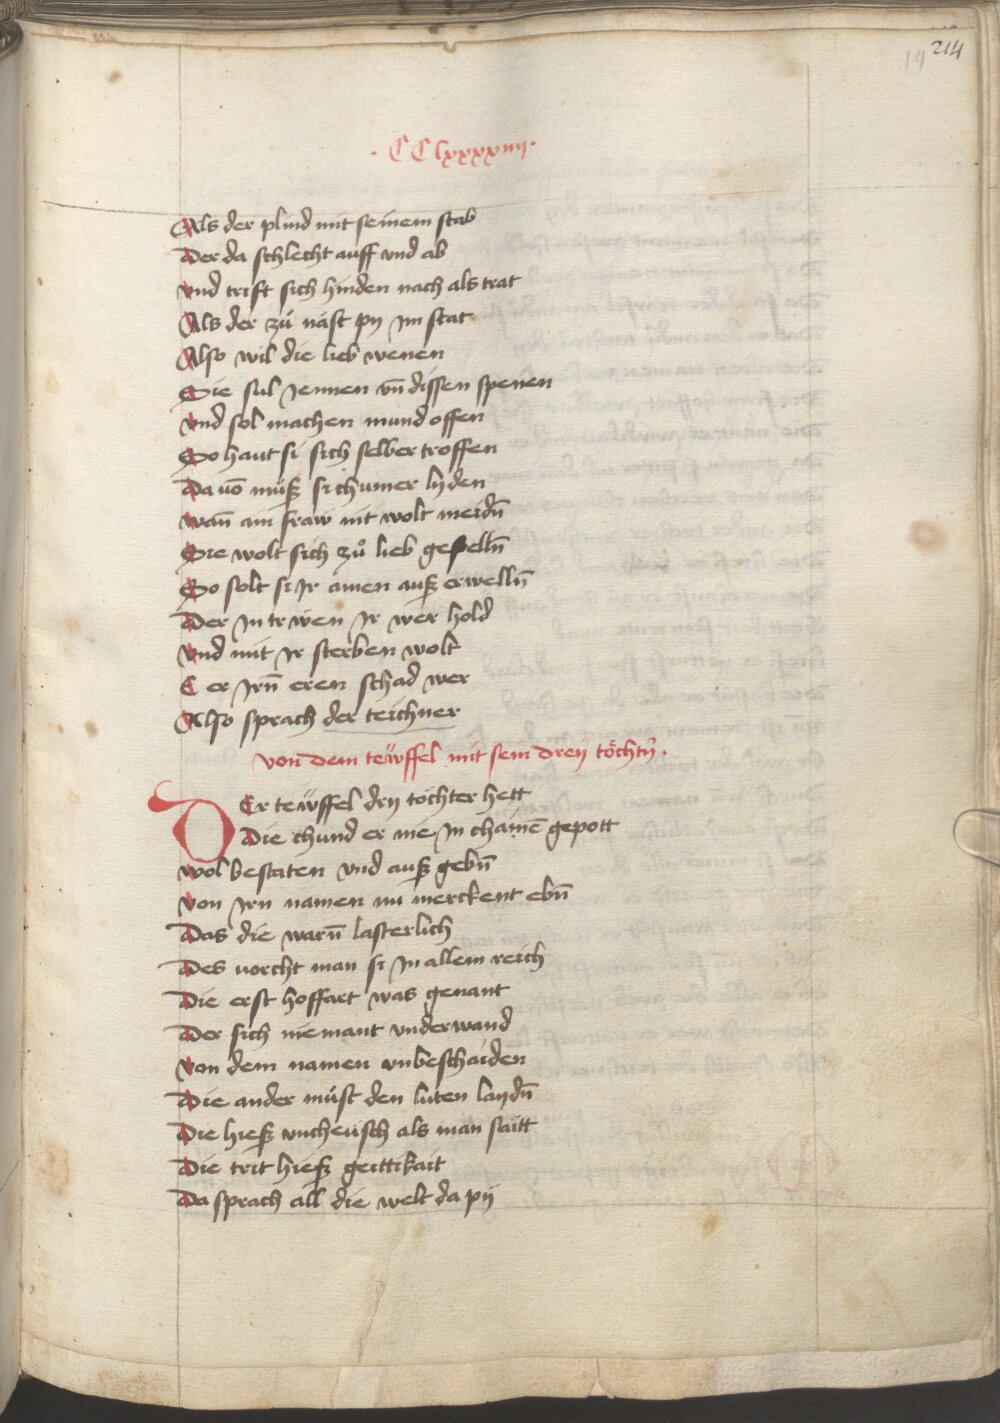 214
· CC lxxxxiiij ·
Als der plind mit seinem stab
Der da schlecht auff vnd ab
Vnd trift sich hinden nach als trat
Als der zů näst py Im stat
Also wil die lieb wenen
Sie sül Jennen vn̄ dissen spenen
Vnd sol machen mund offen
So haut si sich selber troffen
Da uō müß si chumer lyden
Wan̄ ain fraw nit wolt meidn̄
Sie wolt sich zů lieb geselln̄
So solt si Ir ainen auß erwelln̄
Der In trẅen Ir wer hold
Vnd mit Ir sterben wolt
E er Irn̄ eren schad wer
Also sprach der teichner
Von dem teẅffel mit sein dreÿ töchtn̄ ·
DEr teẅffel drÿ töchter hett
Die chund er nie In chainē gepott
Wol bestaten vnd auß gebn̄
Von Irn namen nu merckent ebn̄
Das die warn̄ lasterlich
Des vorcht man si In allem reich
Die erst hoffart was genant
Der sich niemant vnderwand
Von dem namen vnbeschaiden
Die ander müst den luten laydn̄
Die hieß vncheüsch als man saitt
Die trit hieß geittikait
Da sprach all die welt da pÿ